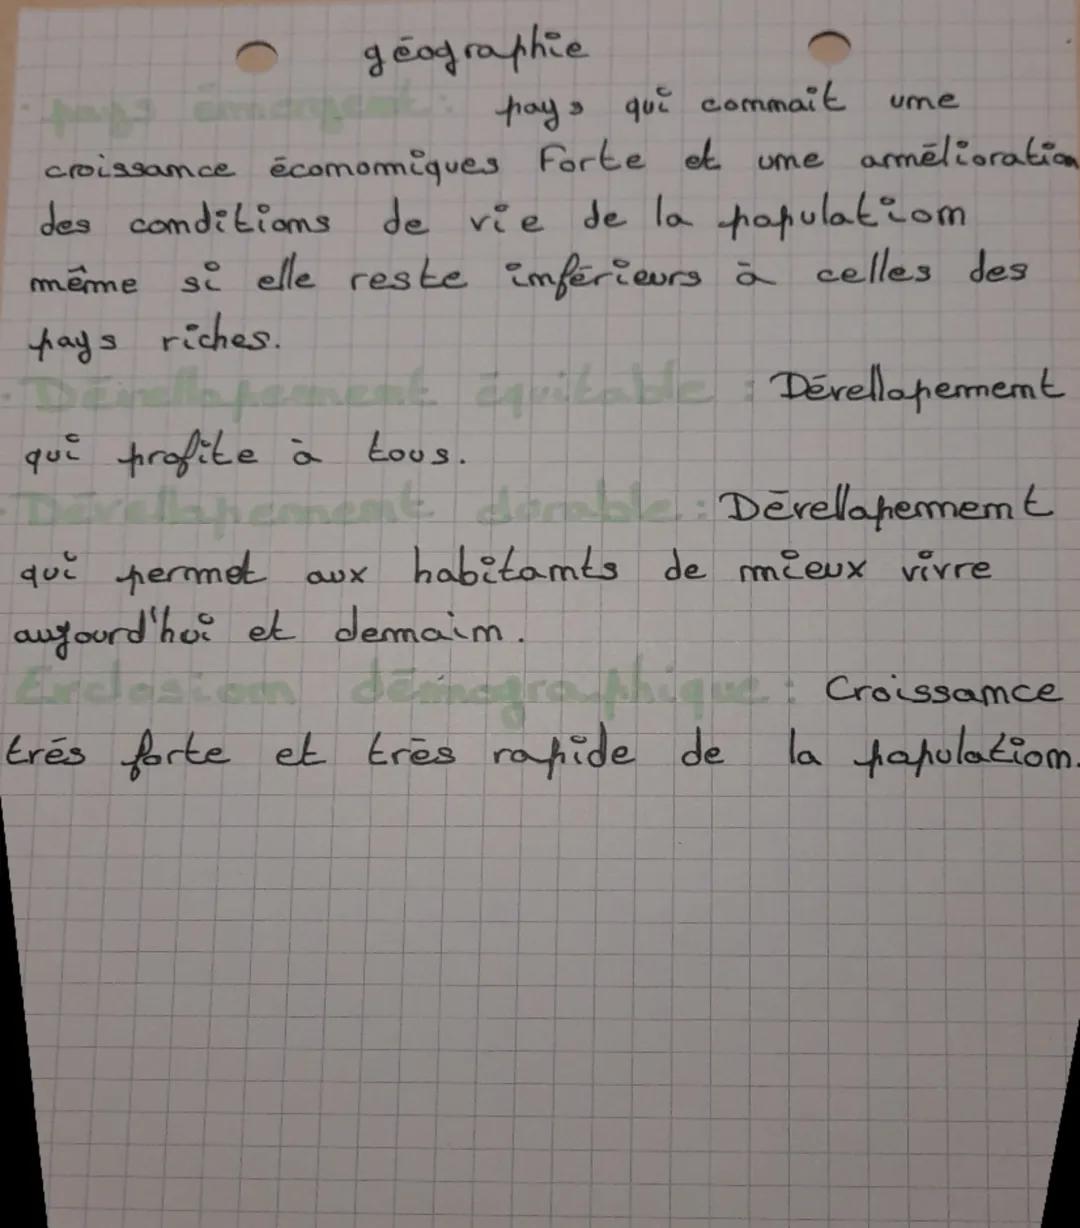 géographie
pays émergent : pays qui connaît une
croissance économiques Forte et une amélioration
des conditions de vie de la population
même si elle reste inférieurs à celles des
pays riches.
Dévellopement équitable : Dévellopement
qui profite à tous.
Dévellopement durable : Dévellopement
qui permet aux habitants de mieux vivre
aujourd'hui et demain.
Exclosion démographique : Croissance
trés forte et très rapide de la population.